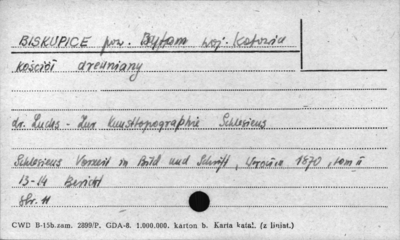 BISKUPICE pow. Bytom woj. Katowice
kościół drewniany
dr. Luchs - Zur Kunsttopographie Schlesiens
Schlesiens Vorzeit in Bild und Schrift, 1870, tom II
13-14 Bericht
str. 11
CWD B-15b.zam. 2899/P. GDA-8. 1.000.000. karton b. Karta katal. (z liniat.)